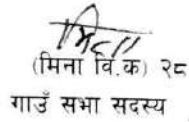 (मिना वि.क) २८
गाउँ सभा सदस्य